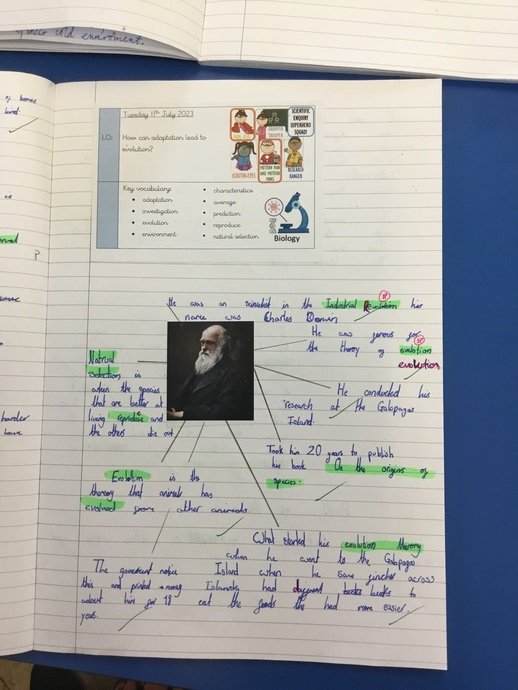 their cold enviroment.
of bones
bird
Tuesday 11th July 2023
LO:
How can adaptation lead to
evolution?
SCIENTIFIC
ENQUIRY
SUPERHERO
SQUAD!
GROUPER
TROOPER
SCRUTIN-EYES
PATTERN PING
AND PATTERN
PANG
RESEARCH
RANGER
Key vocabulary:
• adaptation
• investigation
• evolution
• environment
• characteristics
• average
• prediction
• reproduce
• natural selection
Biology
is
P
harder
have
He was an scientist in the Industrial Revolution his
name was Charles Darwin
He was famous for
the theory of evolution
evolution
Natrual
Selection is
when the species
that are better at
living and
the others die out
He conducted his
research at the Galapagos
Island.
Took him 20 years to publish
his book On the origins of
species.
Evolution is the
theory that animals has
evolved from other animals.
What started his evolution therory
when he went to the Galapagos
Island when he saw fincher across
Islands had beaks to
eat the foods the had more easier.
The goverment notice
this and printed money
about him for 18
years.